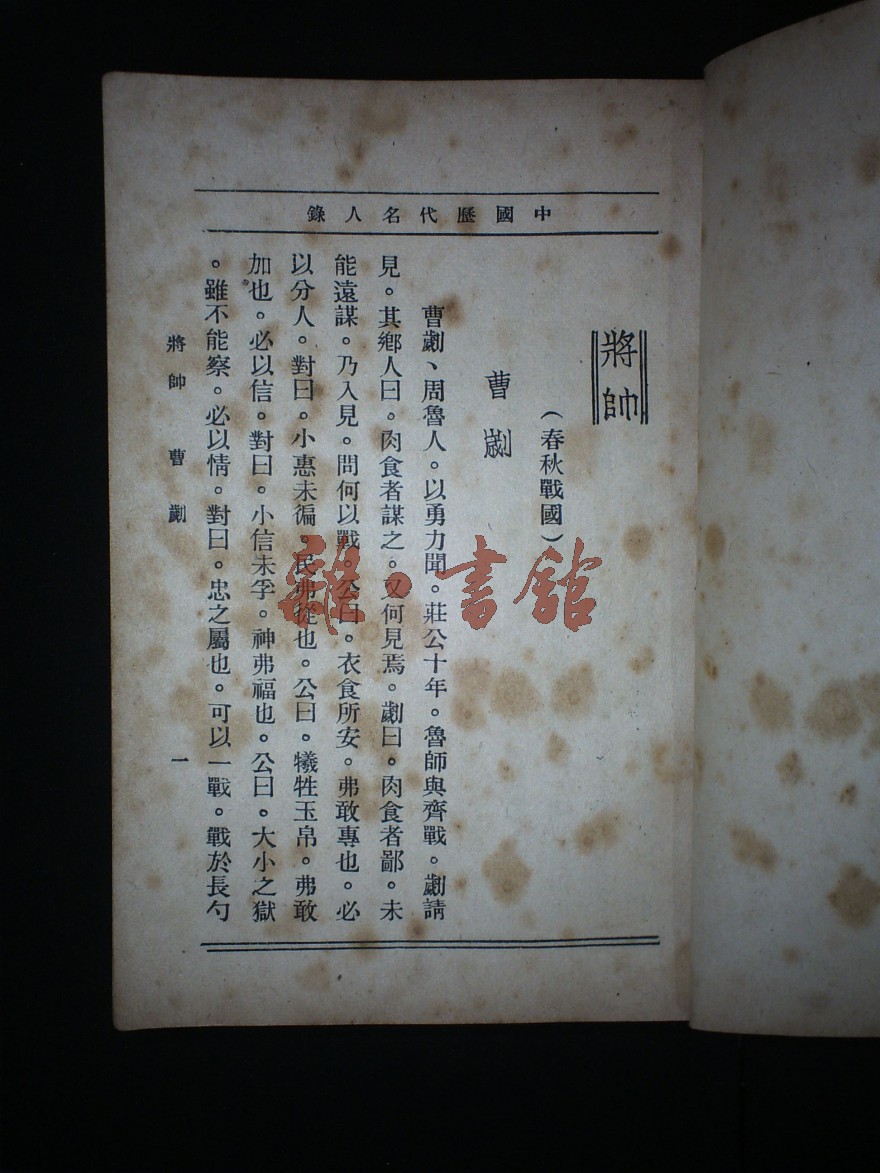 中國歷代名人錄
將帥
(春秋戰國)
曹劌
曹劌、周魯人。以勇力聞。莊公十年。魯師與齊戰。劌請
見。其鄉人曰。肉食者謀之。又何見焉。劌曰。肉食者鄙。未
能遠謀。乃入見。問何以戰。公曰。衣食所安。弗敢專也。必
以分人。對曰。小惠未徧。民弗從也。公曰。犧牲玉帛。弗敢
加也。必以信。對曰。小信未孚。神弗福也。公曰。大小之獄
。雖不能察。必以情。對曰。忠之屬也。可以一戰。戰於長勺
將帥 曹劌 一
雜·書館